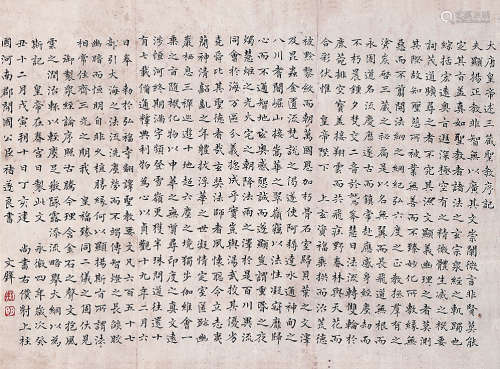 大唐皇帝述三藏聖教序記
夫顯揚正教非智無以廣其文崇闡微言非賢莫能
定其旨蓋真如聖教者諸法之玄宗眾經之軌躅也
綜括宏遠奧旨遐深極空有之精微體生滅之機要
詞茂道曠尋之者不究其源文顯義幽理之者莫測
其際故知聖慈所被業無善而不臻妙化所敷緣無
惡而不翦開法網之綱紀弘六度之正教拯群有之
塗炭啟三藏之秘扃是以名無翼而長飛道無根而
永固道名流慶歷遂古而鎮常赴感應身經塵劫而
不朽晨鐘夕梵交二音於鷲峰慧日法流轉雙輪於
鹿苑排空寶蓋接翔雲而共飛莊野春林與天花而
合彩伏惟 皇帝陛下 上玄資福垂拱而治八荒德
被黔黎斂衽而朝萬國恩加朽骨石室歸貝葉之文澤
及昆蟲金匱流梵說之偈遂使阿耨達水通神甸之
八川耆闍崛山接嵩華之翠嶺竊以法性凝寂靡歸
心而不通智地玄奧感懇誠而遂顯豈謂重昏之夜
燭慧炬之光火宅之朝降法雨之澤於是百川異流
同會於海萬區分義總成乎實豈與湯武校其優劣
堯舜比其聖德者哉玄奘法師者夙懷聰令立志夷
簡神清齠齔之年體拔浮華之世凝情定室匿跡幽
巖棲息三禪巡遊十地超六塵之境獨步伽維會一
乘之旨隨機化物以中華之無質尋印度之真文遠
涉恒河終期滿字頻登雪嶺更獲半珠問道往還十
有七載備通釋典利物為心以貞觀十九年二月六
日奉 勅於弘福寺翻譯聖教要文凡六百五十七
部引大海之法流洗塵勞而不竭傳智燈之長燄皎
幽闇而恒明自非久植勝緣何以顯揚斯旨所謂法
相常住齊三光之明我皇福臻同二儀之固伏見
御製眾經論序照古騰今理含金石之聲文抱風
雲之潤治輒以輕塵足岳墜露添流略舉大綱以為
斯記 皇帝在春宮日製此文 永徽四年歲次癸
丑十二月戊寅朔十日丁亥建 尚書右僕射上柱
國河南郡開國公臣褚遂良書